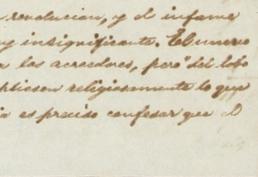 revolucion, y el informe
insignificante. El nuevo
a los acreedores, pero del lobo
religiosamente lo que
es preciso confesar que el